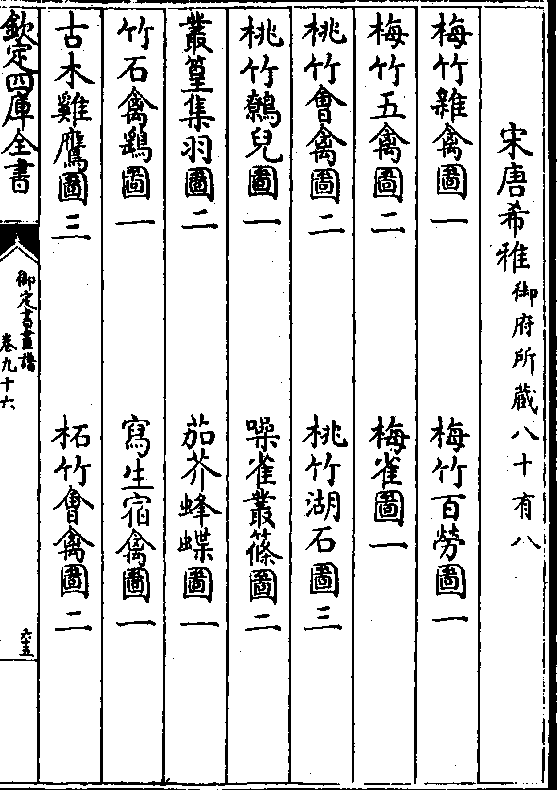 宋唐希雅御府所藏八十有八
梅竹雜禽圖一　梅竹百勞圖一
梅竹五禽圖二　梅雀圖一
桃竹會禽圖二　桃竹湖石圖三
桃竹鷯兒圖一　噪雀叢篠圖二
叢篁集羽圖二　茄芥蜂蝶圖一
竹石禽鷃圖一　寫生宿禽圖一
古木雞鷹圖三　柘竹會禽圖二
欽定四庫全書
御定書畫譜
卷九十六
六五